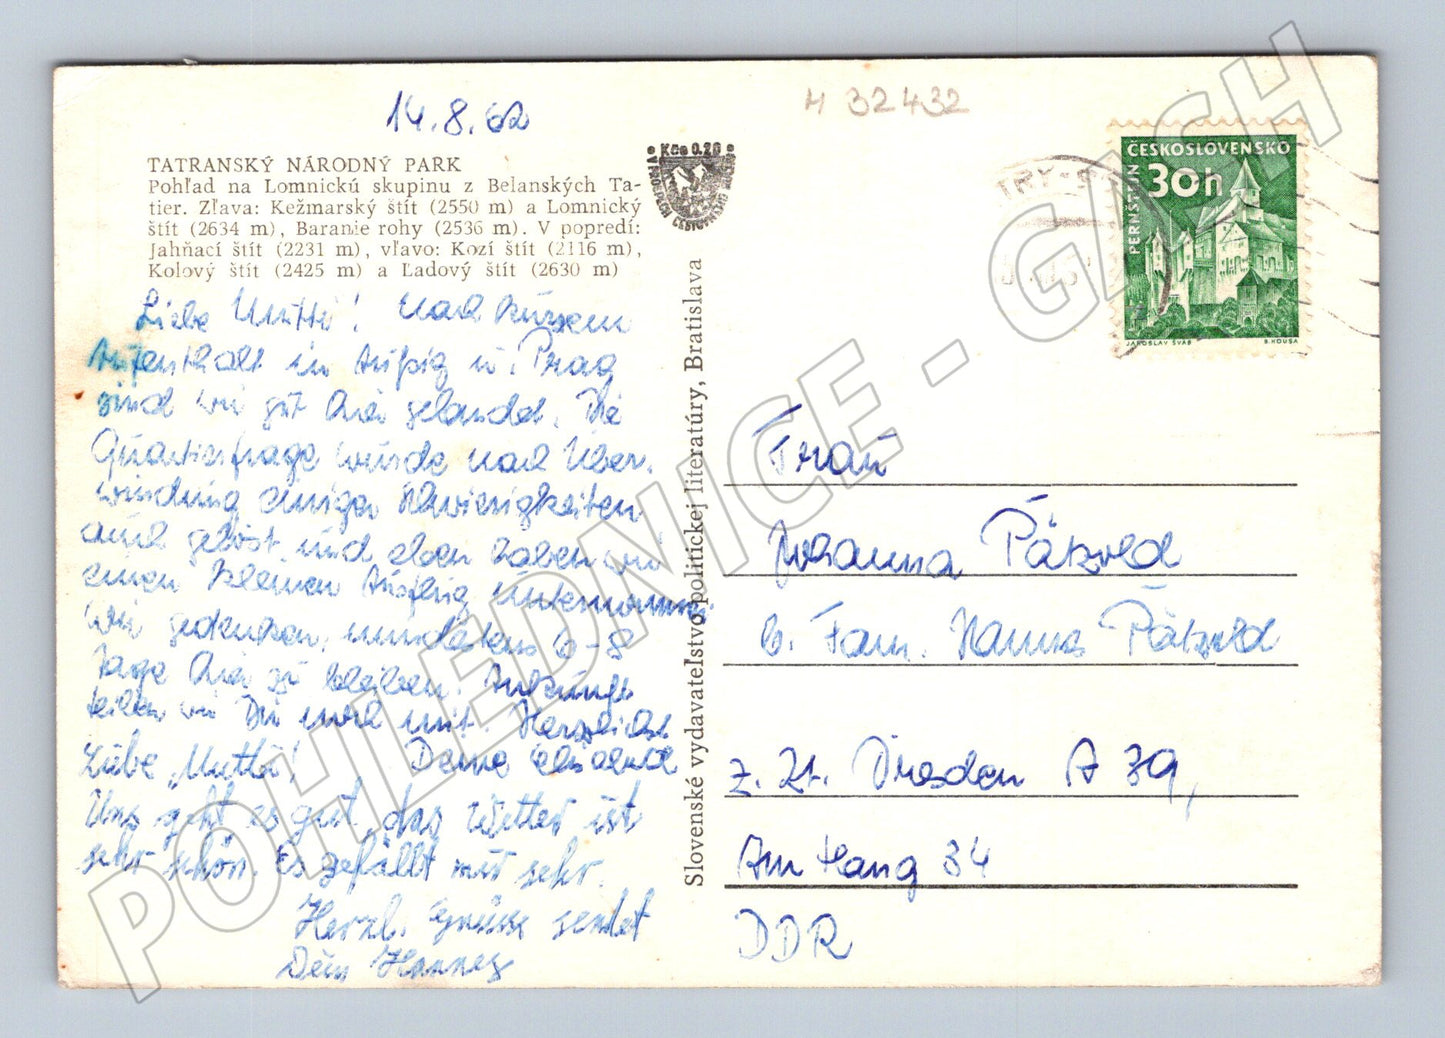 14.8.62
H 32432
TATRANSKÝ NÁRODNÝ PARK
Pohľad na Lomnickú skupinu z Belanských Ta-
tier. Zľava: Kežmarský štít (2550 m) a Lomnický
štít (2634 m), Baranie rohy (2536 m). V popredí:
Jahňací štít (2231 m), vľavo: Kozí štít (2116 m),
Kolový štít (2425 m) a Ľadový štít (2630 m)
Kčs 0.20
Liebe Mutti! Nach kurzem
Aufenthalt in Außig u. Prag
sind wir gut hier gelandet. Die
Quartierfrage wurde nach Über-
windung einiger Schwierigkeiten
auch gelöst und eben haben wir
einen kleinen Ausflug unternommen
Wir gedenken, mindestens 6-8
Tage hier zu bleiben. Ankunft
teilen wir Dir noch mit. Herzlichst
Deine
Liebe "Mutti"!
Uns geht es gut, das Wetter ist
sehr schön. Es gefällt mir sehr.
Herzl. Grüsse sendet
Dein Hannes
Slovenské vydavateľstvo politickej literatúry, Bratislava
ČESKOSLOVENSKO
30h
PERNŠTEJN
JAROSLAV ŠVÁB
B. HOUSA
Frau
Johanna Pätzold
b. Fam. Hanns Pätzold
z. Zt. Dresden A 39,
Am Hang 34
DDR
POHLEDNICE - GASH